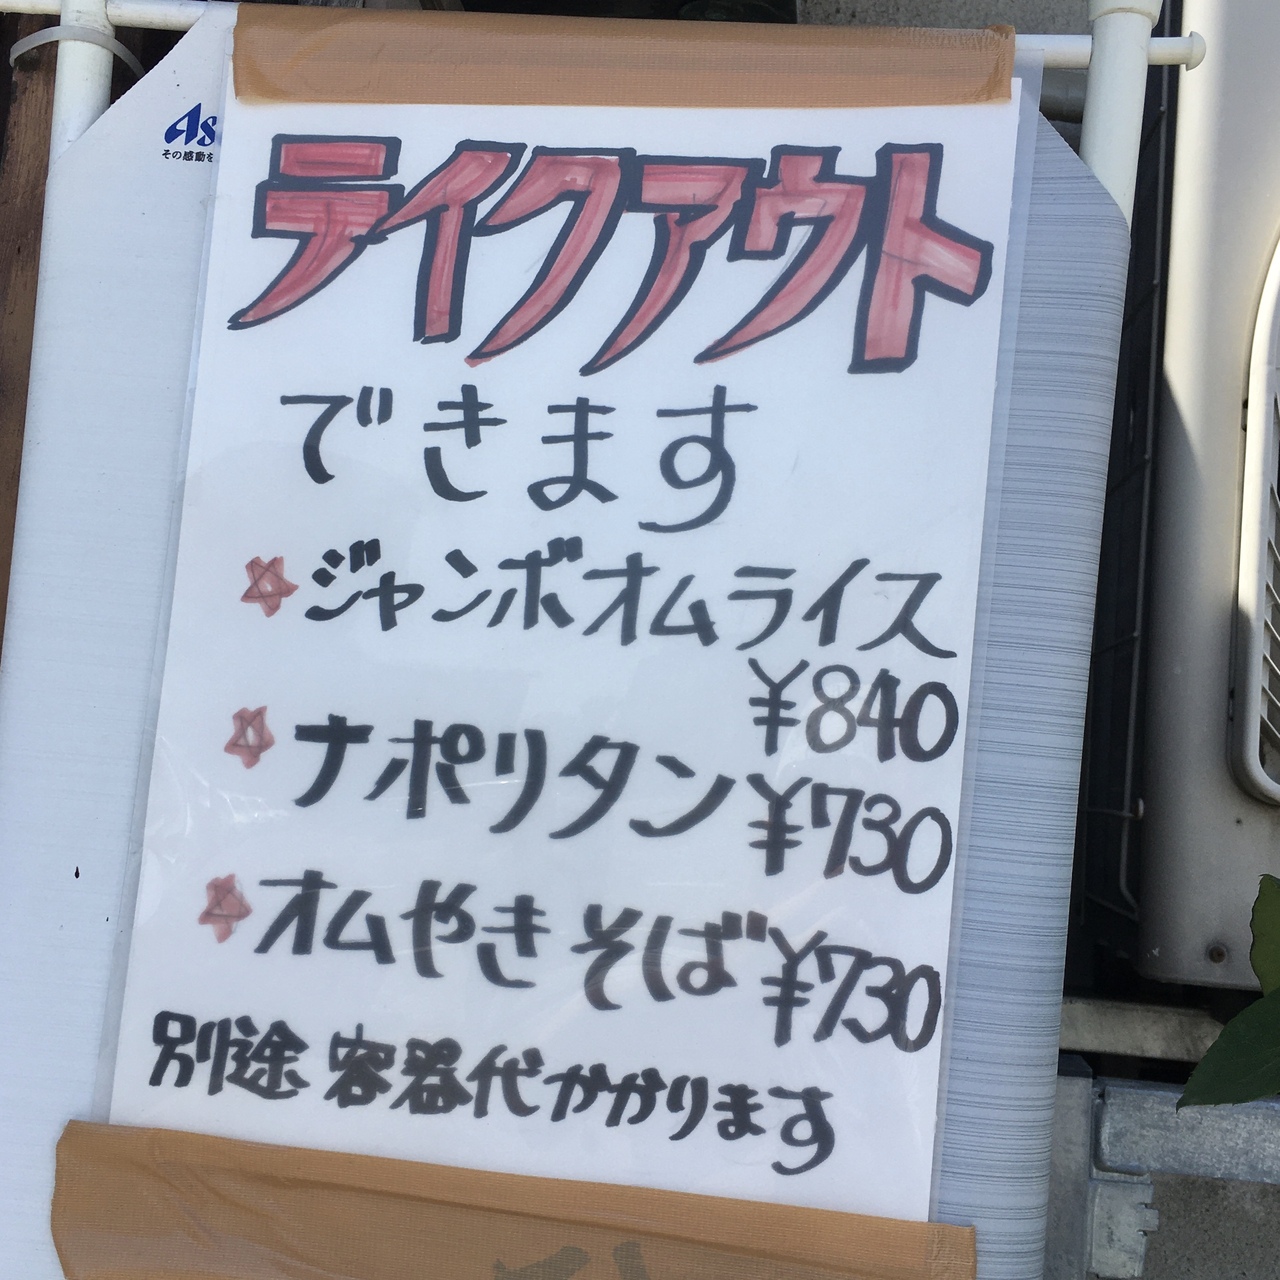 As
その感動を
テイクアウト
できます
ジャンボオムライス
¥840
ナポリタン ¥730
オムやきそば ¥730
別途 容器代かかります